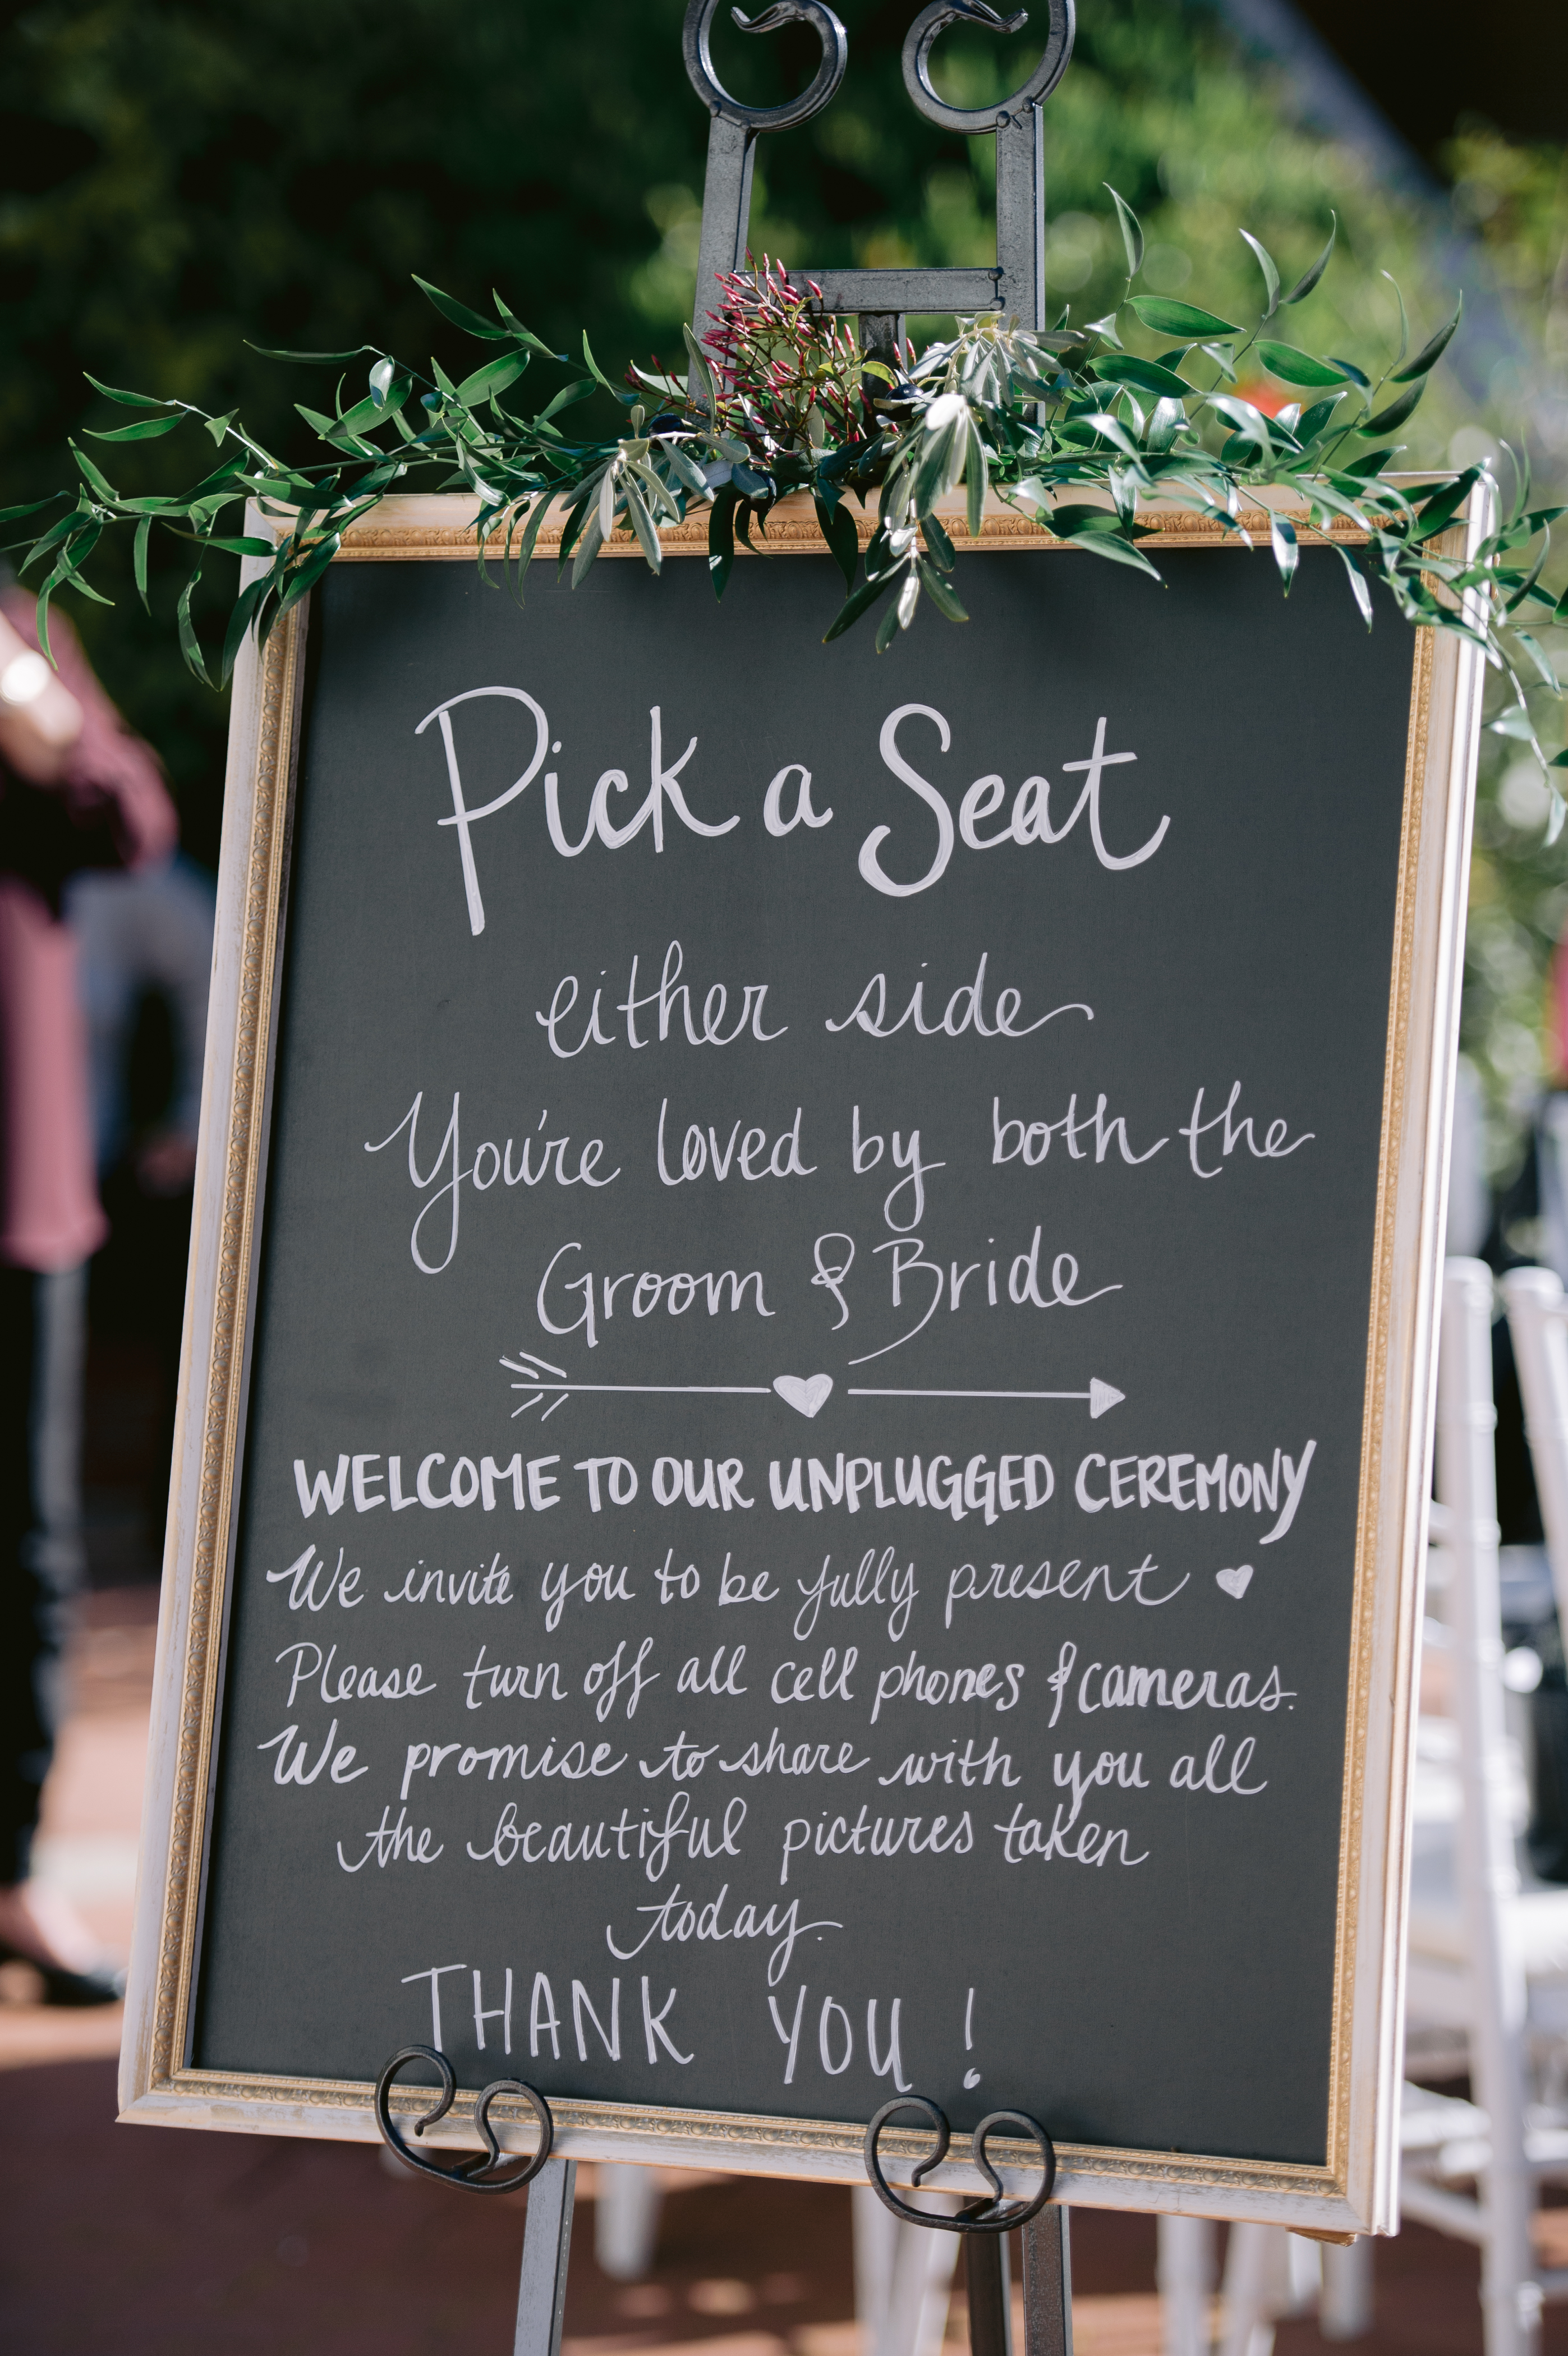 Pick a Seat
either side
You're loved by both the
Groom & Bride
WELCOME TO OUR UNPLUGGED CEREMONY
We invite you to be fully present
Please turn off all cell phones & cameras.
We promise to share with you all
the beautiful pictures taken
today.
THANK YOU!